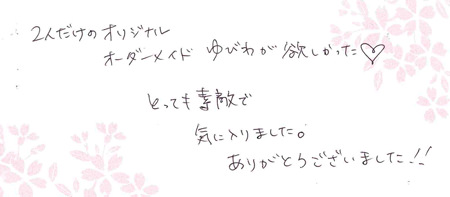 2人だけの オリジナル
オーダーメイド ゆびわが 欲しかった♡
とっても素敵で
気に入りました。
ありがとうございました!!